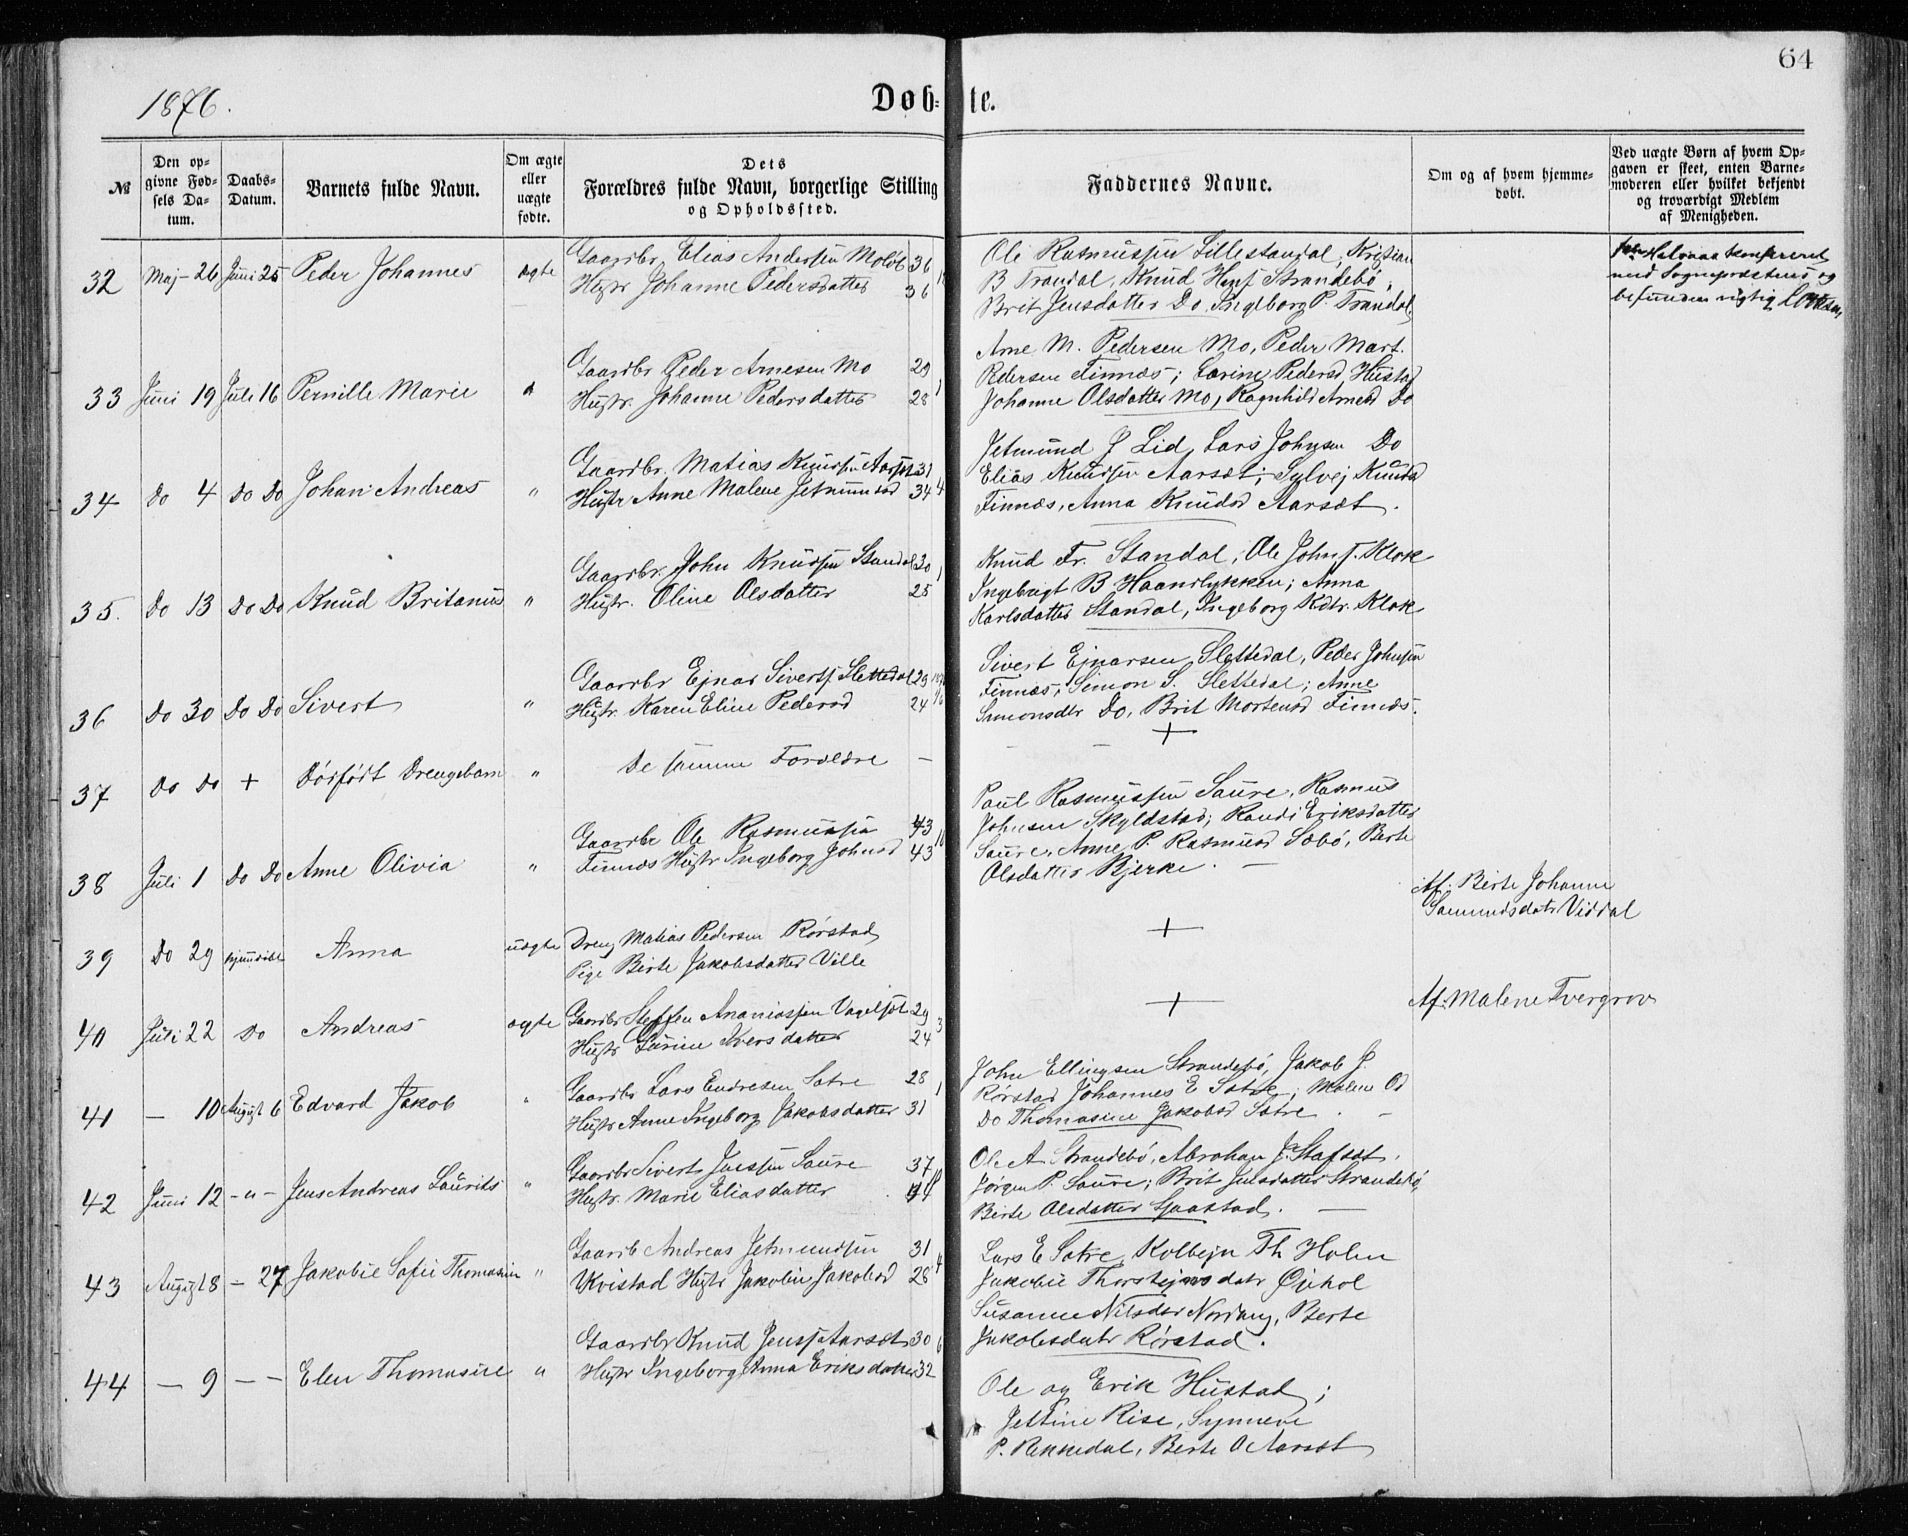 64
1876.
Døb- te.
№
Den opgivne Fødsels Datum.
Daabs-Datum.
Barnets fulde Navn.
Om ægte eller uægte fødte.
Dets Forældres fulde Navn, borgerlige Stilling og Opholdssted.
Faddernes Navne.
Om og af hvem hjemmedøbt.
Ved uægte Børn af hvem Opgaven er skeet, enten Barnemoderen eller hvilket bekjendt og troværdigt Medlem af Menigheden.
32 Maj 26 Juni 25 Peder Johannes ægte
Gaardbr. Elias Andersen 36
Hustr Johanne Pedersdatter 36
Ole Rasmussen Lillestandal, Kristian
B Trandal, Knud Hansf Strandebø,
Brit Jensdatter Do, Ingeborg P. Trandal
Halvaar konfereret
med Sognepræstens og
befunden rigtig
33 Juni 19 Juli 16 Pernille Marie "
Gaardbr Peder Arnesen Mo 29
Hustr. Johanne Pedersdatter 28
Arne M. Pedersen Mo, Peder Mart.
Pedersen Finnes; Larine Pedersd Hustad
Johanne Olsdatter Mo, Ragnhild Arnesd Do
34 Do 4 Do Do Johan Andreas "
Gaardbr. Matias Knudsen Aarset 31
Hustr Anne Malene Jetmundsd 34
Jetmund J Lid, Lars Johnsen Do
Elias Knudsen Aarsæt; Sylvej Knudsd
Finnæs, Anna Knudsd Aarsæt.
35. Do 13 Do Do Knud Britanus "
Gaardbr. John Knudsen Standal 30
Hustr. Oline Olsdatter 25
Knud Fr. Standal, Ole Johnf. Klok
Ingebrigt B Haandlykken; Anna
Karlsdatter Standal, Ingeborg Kdtr. Klok
36 Do 30 Do Do Sivert "
Gaardbr Ejnar Sivertf Slettedal 23
Hustr Karen Eline Pedersd 24
Sivert Ejnarsen Slettedal, Peder Johnsen
Finnæs, Simon S. Slettedal; Anne
Simonsdtr Do, Brit Mortensd Finnæs.
37 Do Do + Dødfødt Drengebarn "
De samme Forældre –
+
38 Juli 1 Do Do Anne Olivia "
Gaardbr Ole Rasmussen 43
Finnæs Hustr Ingeborg Johnsd 43
Paul Rasmussen Saure, Rasmus
Johnsen Skyldstad; Randi Eriksdatter
Saure, Anne P. Rasmusd Sæbø, Berte
Olsdatter Bjerke.
39 Do 29 hjemdøbt Anna uægte
Dreng Matias Pedersen Rørstad
Pige Birte Jakobsdatter Ville
+
Af. Birte Johanne
Samundsdatr Viddal
40 Juli 22 Do Andreas ægte
Gaardbr Steffen Ananiassen 29
Hustr Lurine Iversdatter 24
+
Af. Malene Tvergrov
41 – 10 August 6 Edvard Jakob "
Gaardbr Lars Endresen Sætre 28
Hustr Anne Ingeborg Jakobsdatter 31
John Ellingsen Strandebø, Jakob J.
Rørstad Johannes E Sætre; Malene Od
Do Thomasine Jakobsd Sætre.
42 Juni 12 – " – Jens Andreas Laurits "
Gaardbr Sivert Jenssen Saure 37
Hustr. Marie Eliasdatter
Ole A Strandebø, Abraham J. Stafset,
Jørgen P. Saure; Brit Julsdatter Strandebø,
Birte Olsdatter Sjaastad.
43 August 8 – 27 Jakobie Sofie Thomasine "
Gaardb Andreas Jetmundsen 31
Kvistad Hustr Jakobine Jakobsd 28
Lars E Sætre, Kolbejn Th Holen
Jakobie Thorstejnsdatr
Susanne Nilsdtr Nordang, Berte
Jakobsdatr Rørstad.
44 – 9 – – Elen Thomasine "
Gaardbr Knud Jensf Aarsæt 30
Hustr Ingeborg Anna Eriksdatter 32
Ole og Erik Hustad;
Jettine Rise, Synneve
P. Rekkedal, Berte O Aarsæt